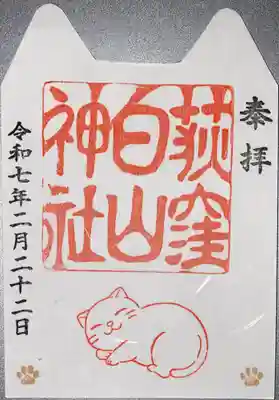 奉拝
荻窪
白山
神社
令和七年二月二十二日